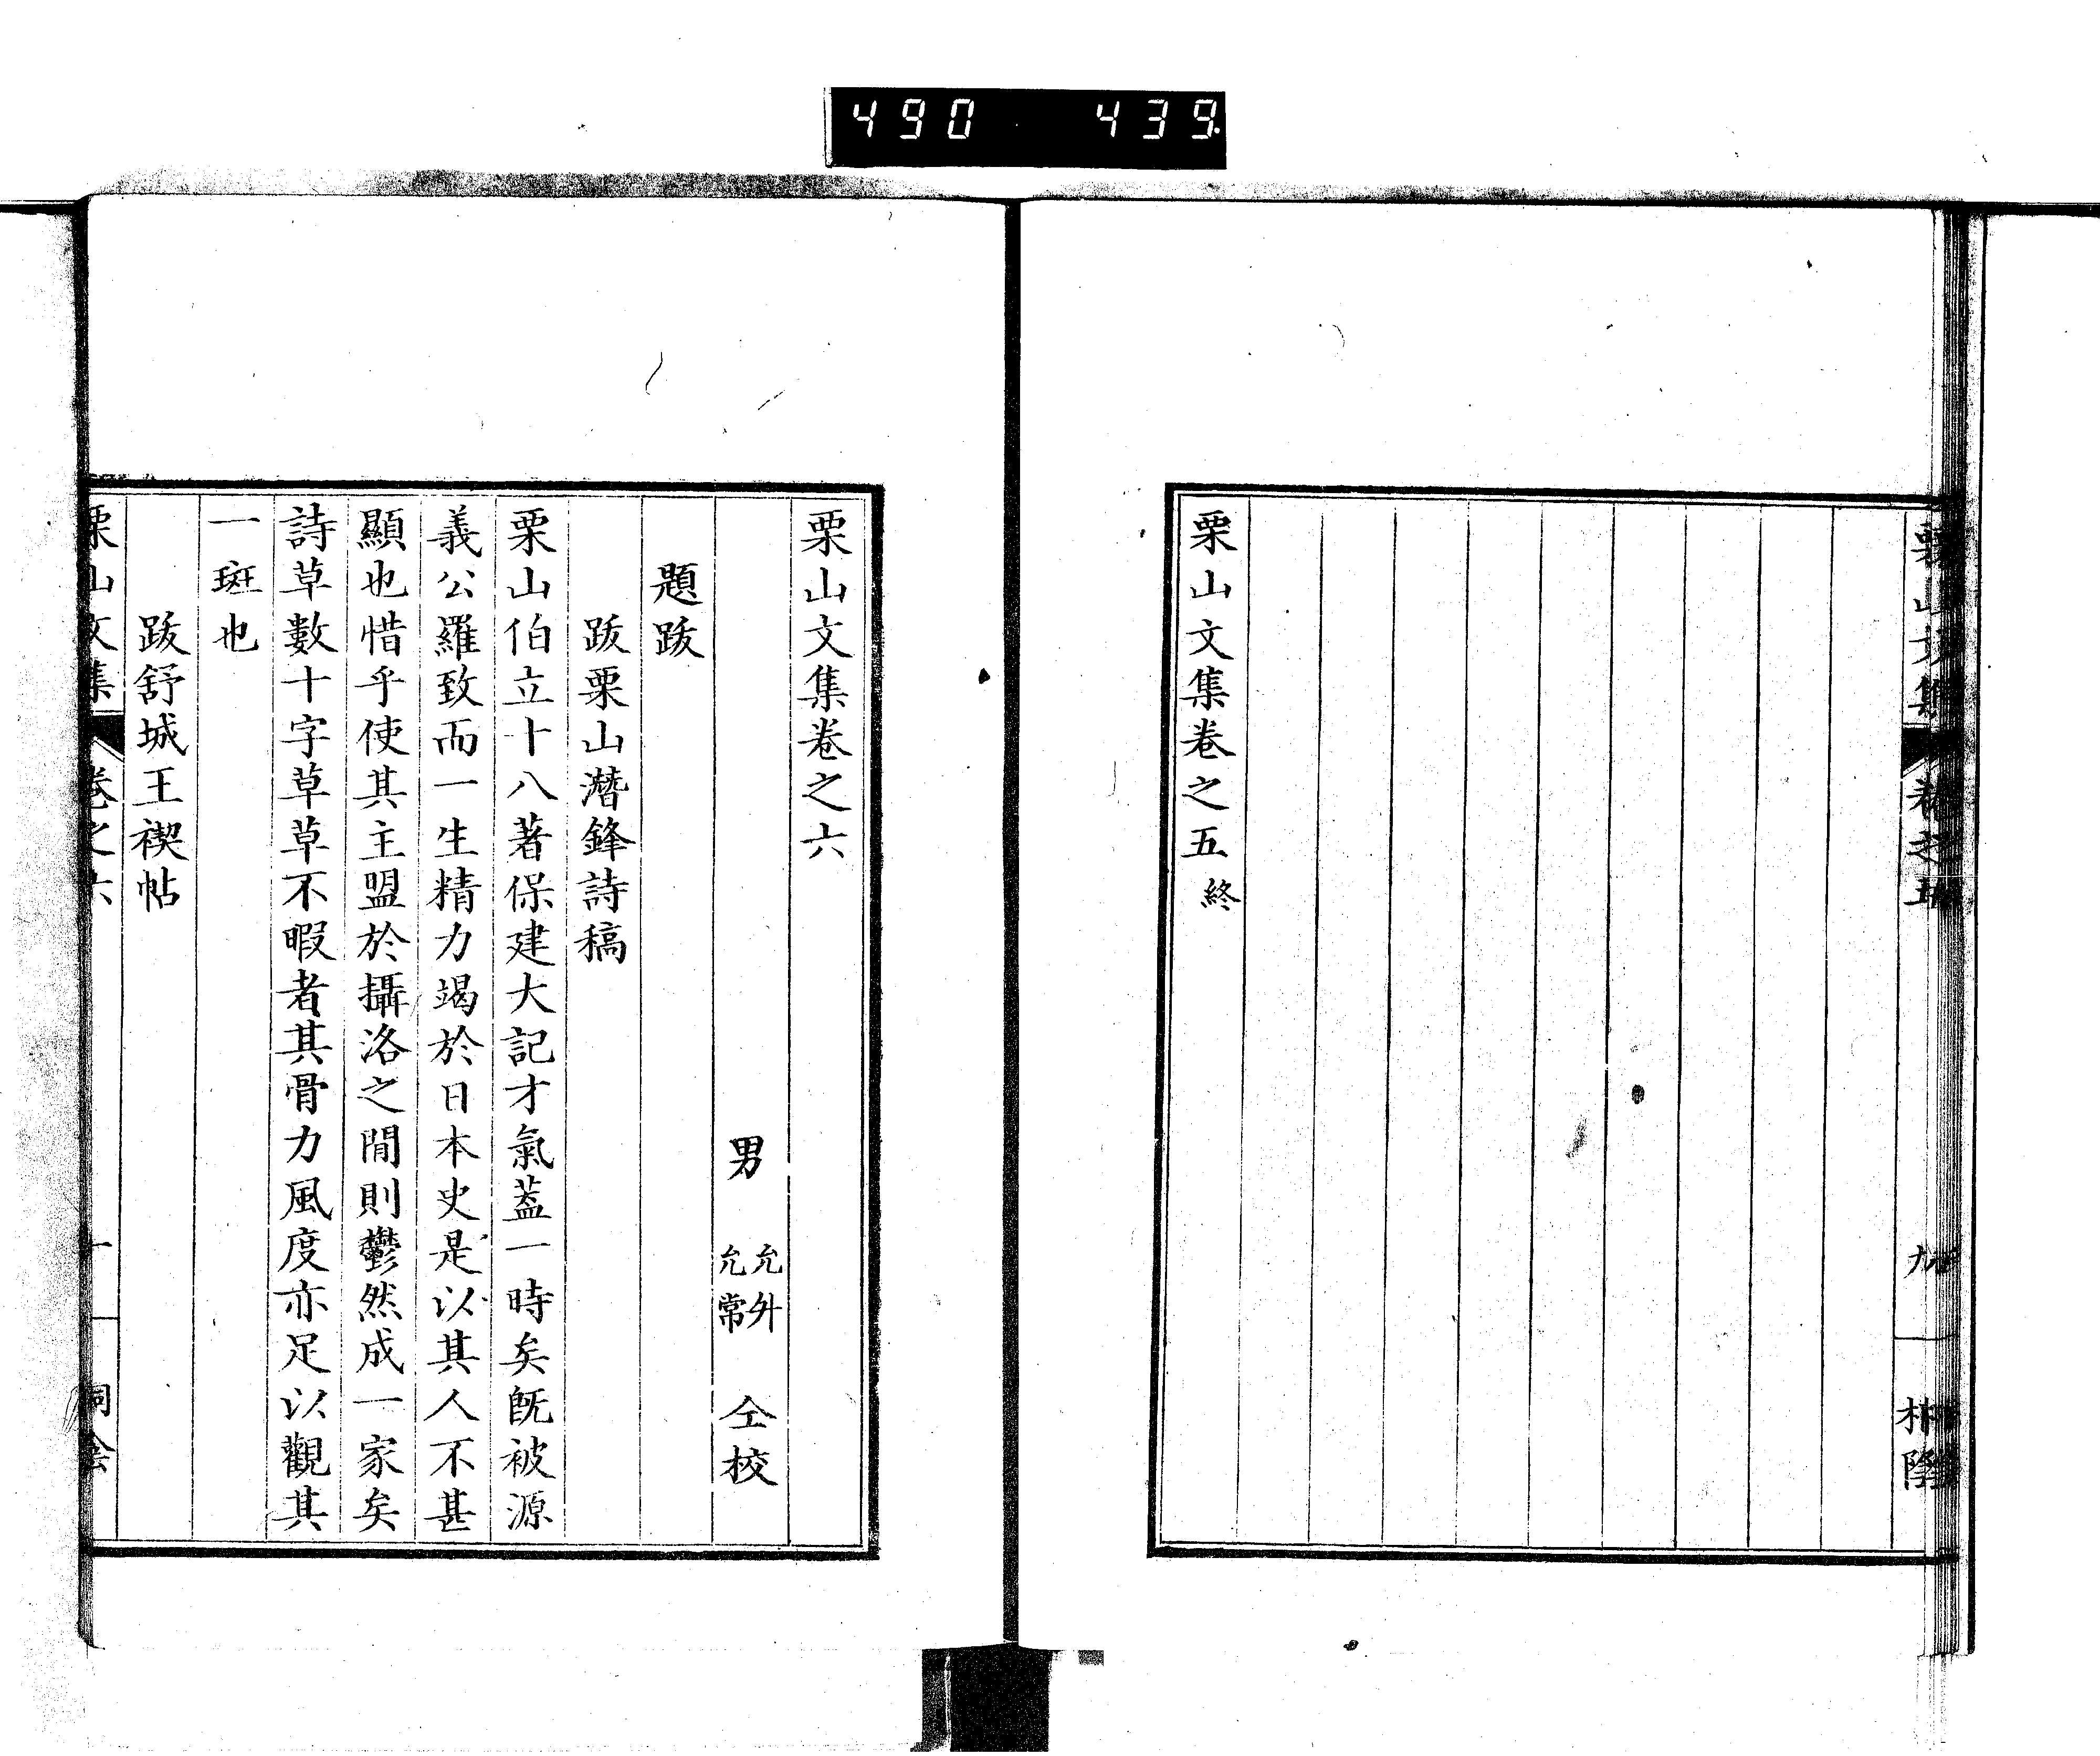 490 439
栗山文集卷之五
九
栗山文集卷之五 終
栗山文集卷之六
男 允升 允常 仝校
題跋
跋栗山潛鋒詩稿
栗山伯立十八著保建大記才氣蓋一時矣旣被源
義公羅致而一生精力竭於日本史是以其人不甚
顯也惜乎使其主盟於攝洛之間則鬱然成一家矣
詩草數十字草草不暇者其骨力風度亦足以觀其
一斑也
跋舒城王禊帖
栗山文集 卷之六
一